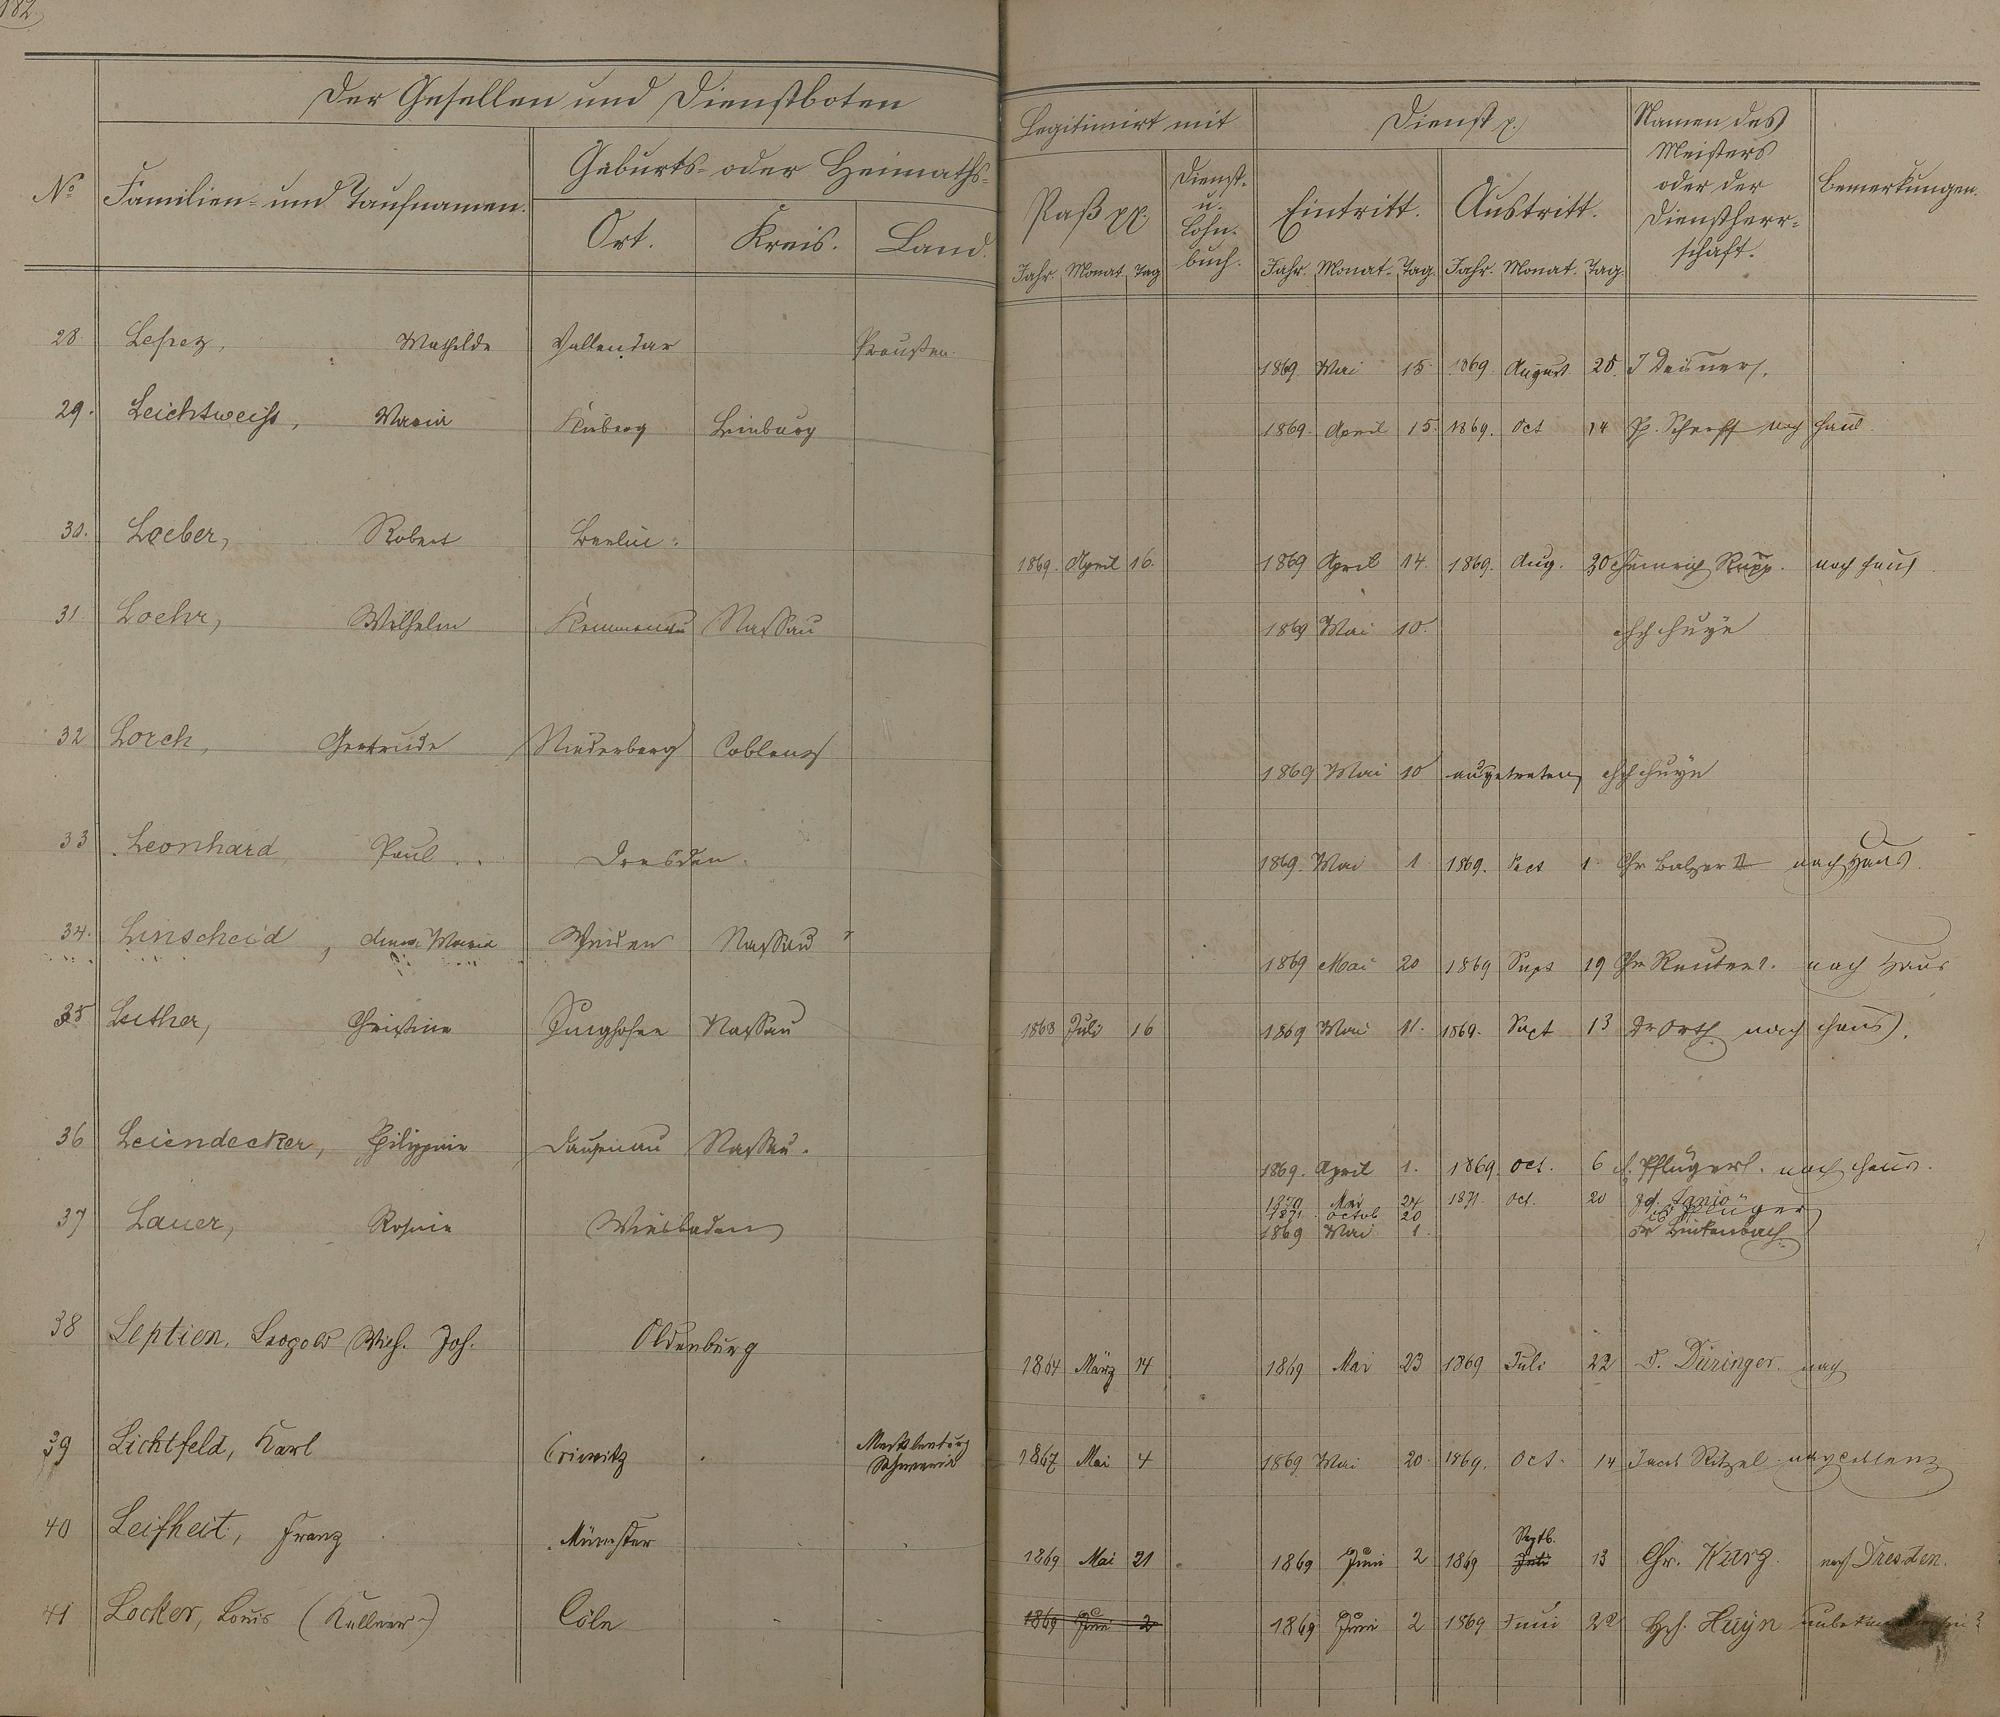 182.
Der Gesellen und Dienstboten
Legitimirt mit
Dienst p.
Namen des
Meisters
oder der
Dienstherr-
schaft.
Bemerkungen.
No
Familien- und Taufnamen.
Geburts- oder Heimaths-
Ort. Kreis. Land.
Paß pp.
Dienst-
u.
Lohn-
buch.
Eintritt. Austritt.
Jahr. Monat Tag Jahr. Monat. Tag. Jahr. Monat. Tag.
28. Mathilde Vallendar Preußen. 1869 Mai 15. 1869. August 25.
29. Leichtweiss, Maria Limburg 1869. April 15. 1869. Oct 14 nach Haus.
30. Loeber, Robert Berlin. 1869. April 16. 1869 April 14. 1869. Aug. 30 Heinrich Rupp. nach Haus
31. Loehr, Wilhelm Kemmenau Nassau 1869 Mai 10. Hch Huyn
32 Lorch, Gertrude Niederberg Coblenz 1869 Mai 10 ausgetreten Hch Huyn
33 Leonhard, Paul Dresden. 1869. Mai 1 1869. 1. Chr Balzer nach Haus.
34. Linscheid, Anna Maria Weiden Nassau 1869 Mai 20 1869 Sept 19 Chr Reuter. nach Haus
35 Luther, Christine Nassau 1868 Juli 16 1869 Mai 11. 1869. Sept 13 Dr Orth nach Haus.
36 Leiendecker, Philippine Dausenau Nassau. 1869. April 1. 1869. Oct. 6 nach Haus.
1870 Mai 24 1871. Oct. 20
1871. Octob 20 Pflüger
37 Lauer, Rosine Wiesbaden 1869 Mai 1.
38 Leptien, Leopold Wilh. Joh. Oldenburg 1864 März 14 1869 Mai 23 1869 Juli 22 Düringer. nach
39 Lichtfeld, Karl Criwitz Mecklenburg
Schwerin 1867 Mai 4 1869 Mai 20. 1869. Oct. 14 Jacob Ritzel. nach Coblenz
40 Leifheit, Franz Münster 1869 Mai 21 1869 Juni 2 1869 Septb. Juli 13 Chr. Karg. nach Dresden.
41 Locker, Louis (Kellner) Cöln 1869 Juni 2 1869 Juni 2 1869 Juni 22 Hch. Huyn